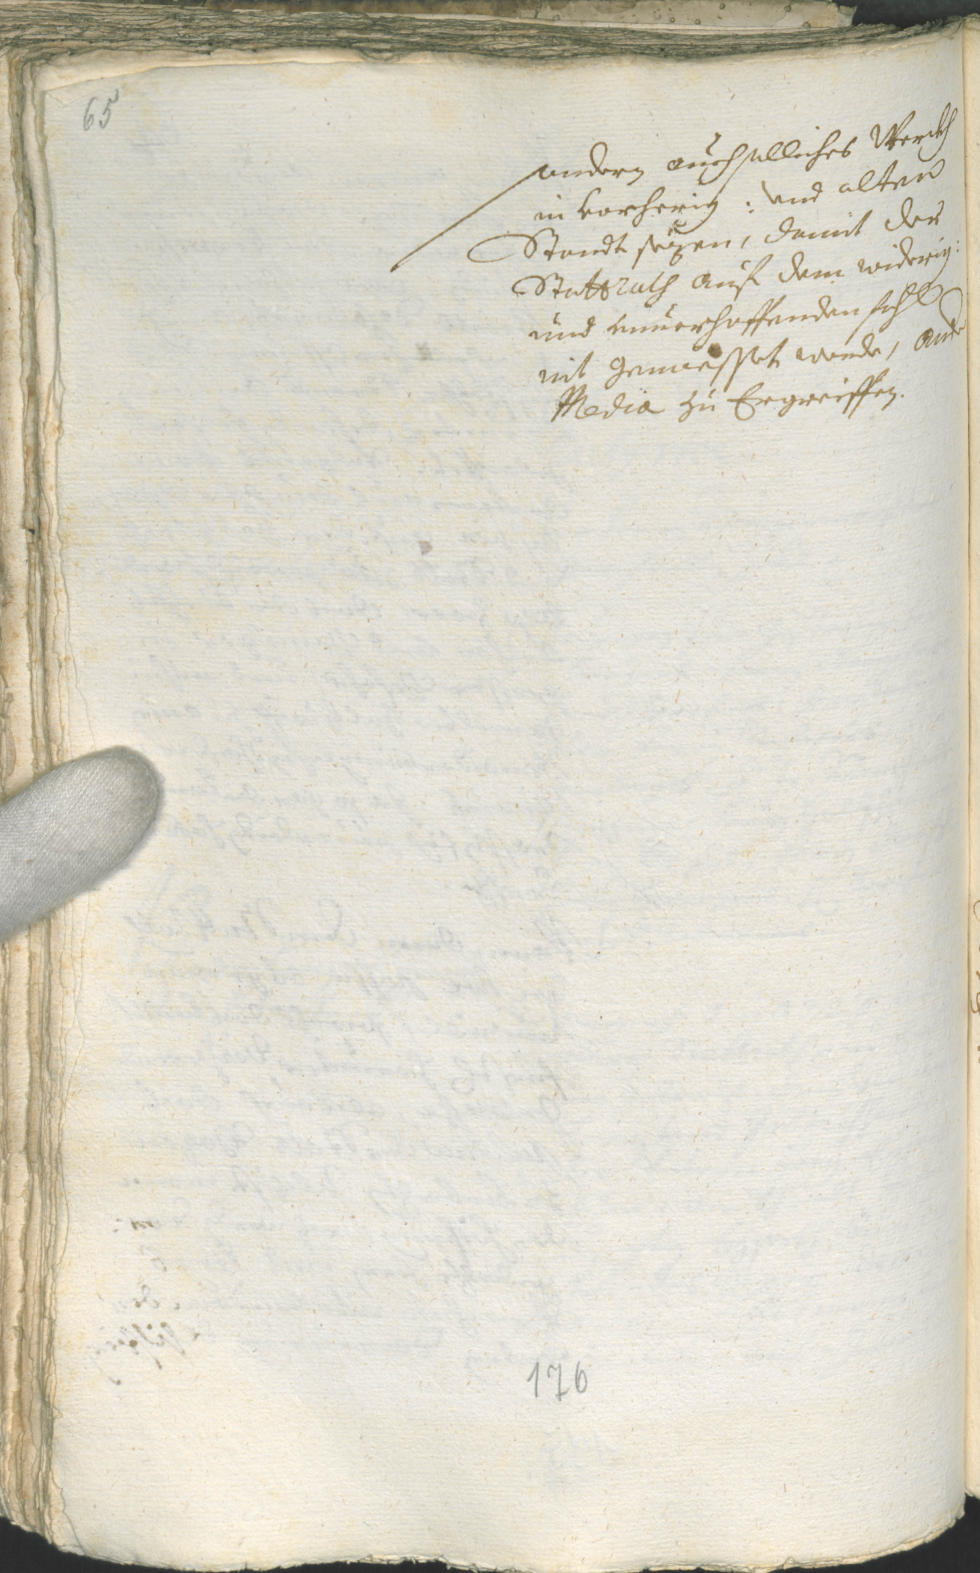 65
andern auch solliches Werckh
in vorherig: und alten
Standt sezen, damit der
Stattrath auf dem widrig:
und unverhoffenden fahl
nit gemiessigt werde, ande
Media zu Ergreiffen.
176